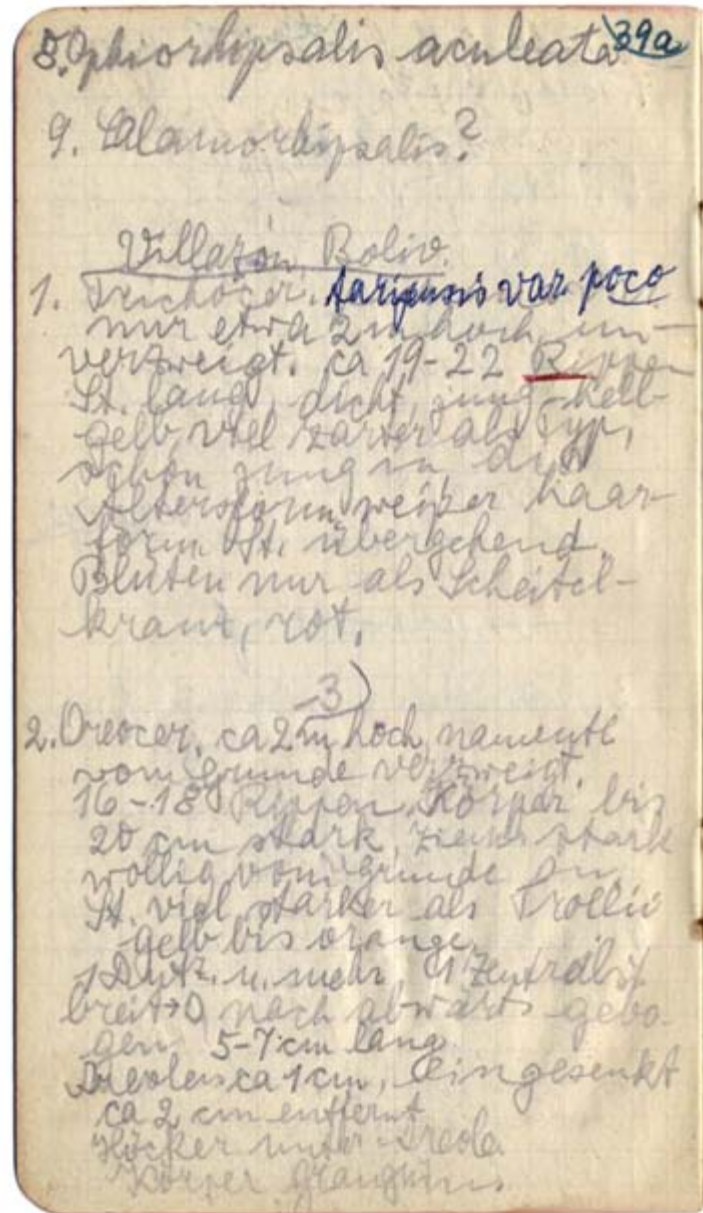 39a
8. Ophiorhipsalis aculeata
9. Calamorhipsalis?
Villazón, Boliv.
1. Trichocer. tarijensis var. poco
nur etwa 2 m hoch, un-
verzweigt. ca 19-22 Rippen
St. lang, dicht, jung hell-
gelb, viel zarter als Typ,
schon jung in die
Altersform weißer haar-
förm. St. übergehend.
Blüten nur als Scheitel-
kranz, rot.
-3)
2. Oreocer. ca 2 m hoch, namentl
vom Grunde verzweigt.
16-18 Rippen, Körper bis
20 cm stark, zieml. stark
wollig vom Grunde an
St. viel stärker als Trollii
gelb bis orange.
1 Dutz. u. mehr, 1 Zentralst.
breit nach abwärts gebo-
gen 5-7 cm lang
Areolen ca 1 cm, eingesenkt
ca 2 cm entfernt
Höcker unter Areola
Körper graugrün.